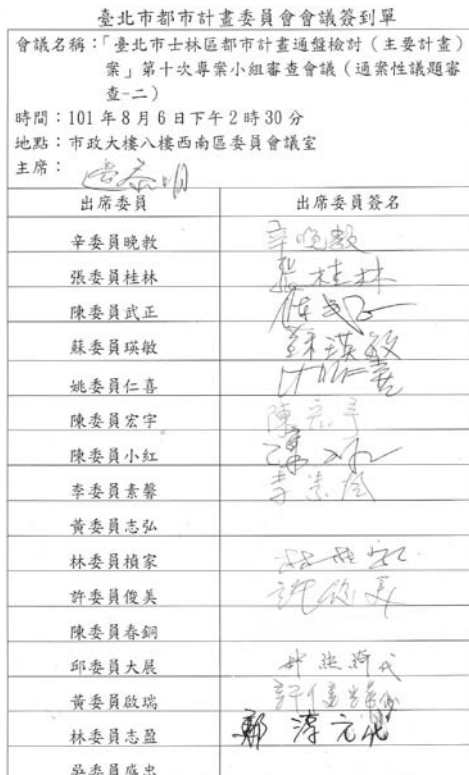 臺北市都市計畫委員會會議簽到單
會議名稱：「臺北市士林區都市計畫通盤檢討（主要計畫）
案」第十次專案小組審查會議（通案性議題審
查-二）
時間：101年8月6日下午2時30分
地點：市政大樓八樓西南區委員會議室
主席：
出席委員 出席委員簽名
辛委員晚教 辛晚教
張委員桂林 張桂林
陳委員武正 陳武正
蘇委員瑛敏 蘇瑛敏
姚委員仁喜
陳委員宏宇 陳宏宇
陳委員小紅 陳小紅
李委員素馨 李素馨
黃委員志弘
林委員楨家 林楨家
許委員俊美 許俊美
陳委員春銅
邱委員大展 代
黃委員啟瑞
林委員志盈 鄭淳元代
吳委員盛忠